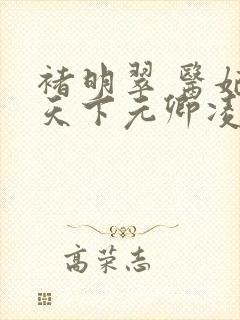 褚明翠 醫妃
天下元卿凌
高荣志